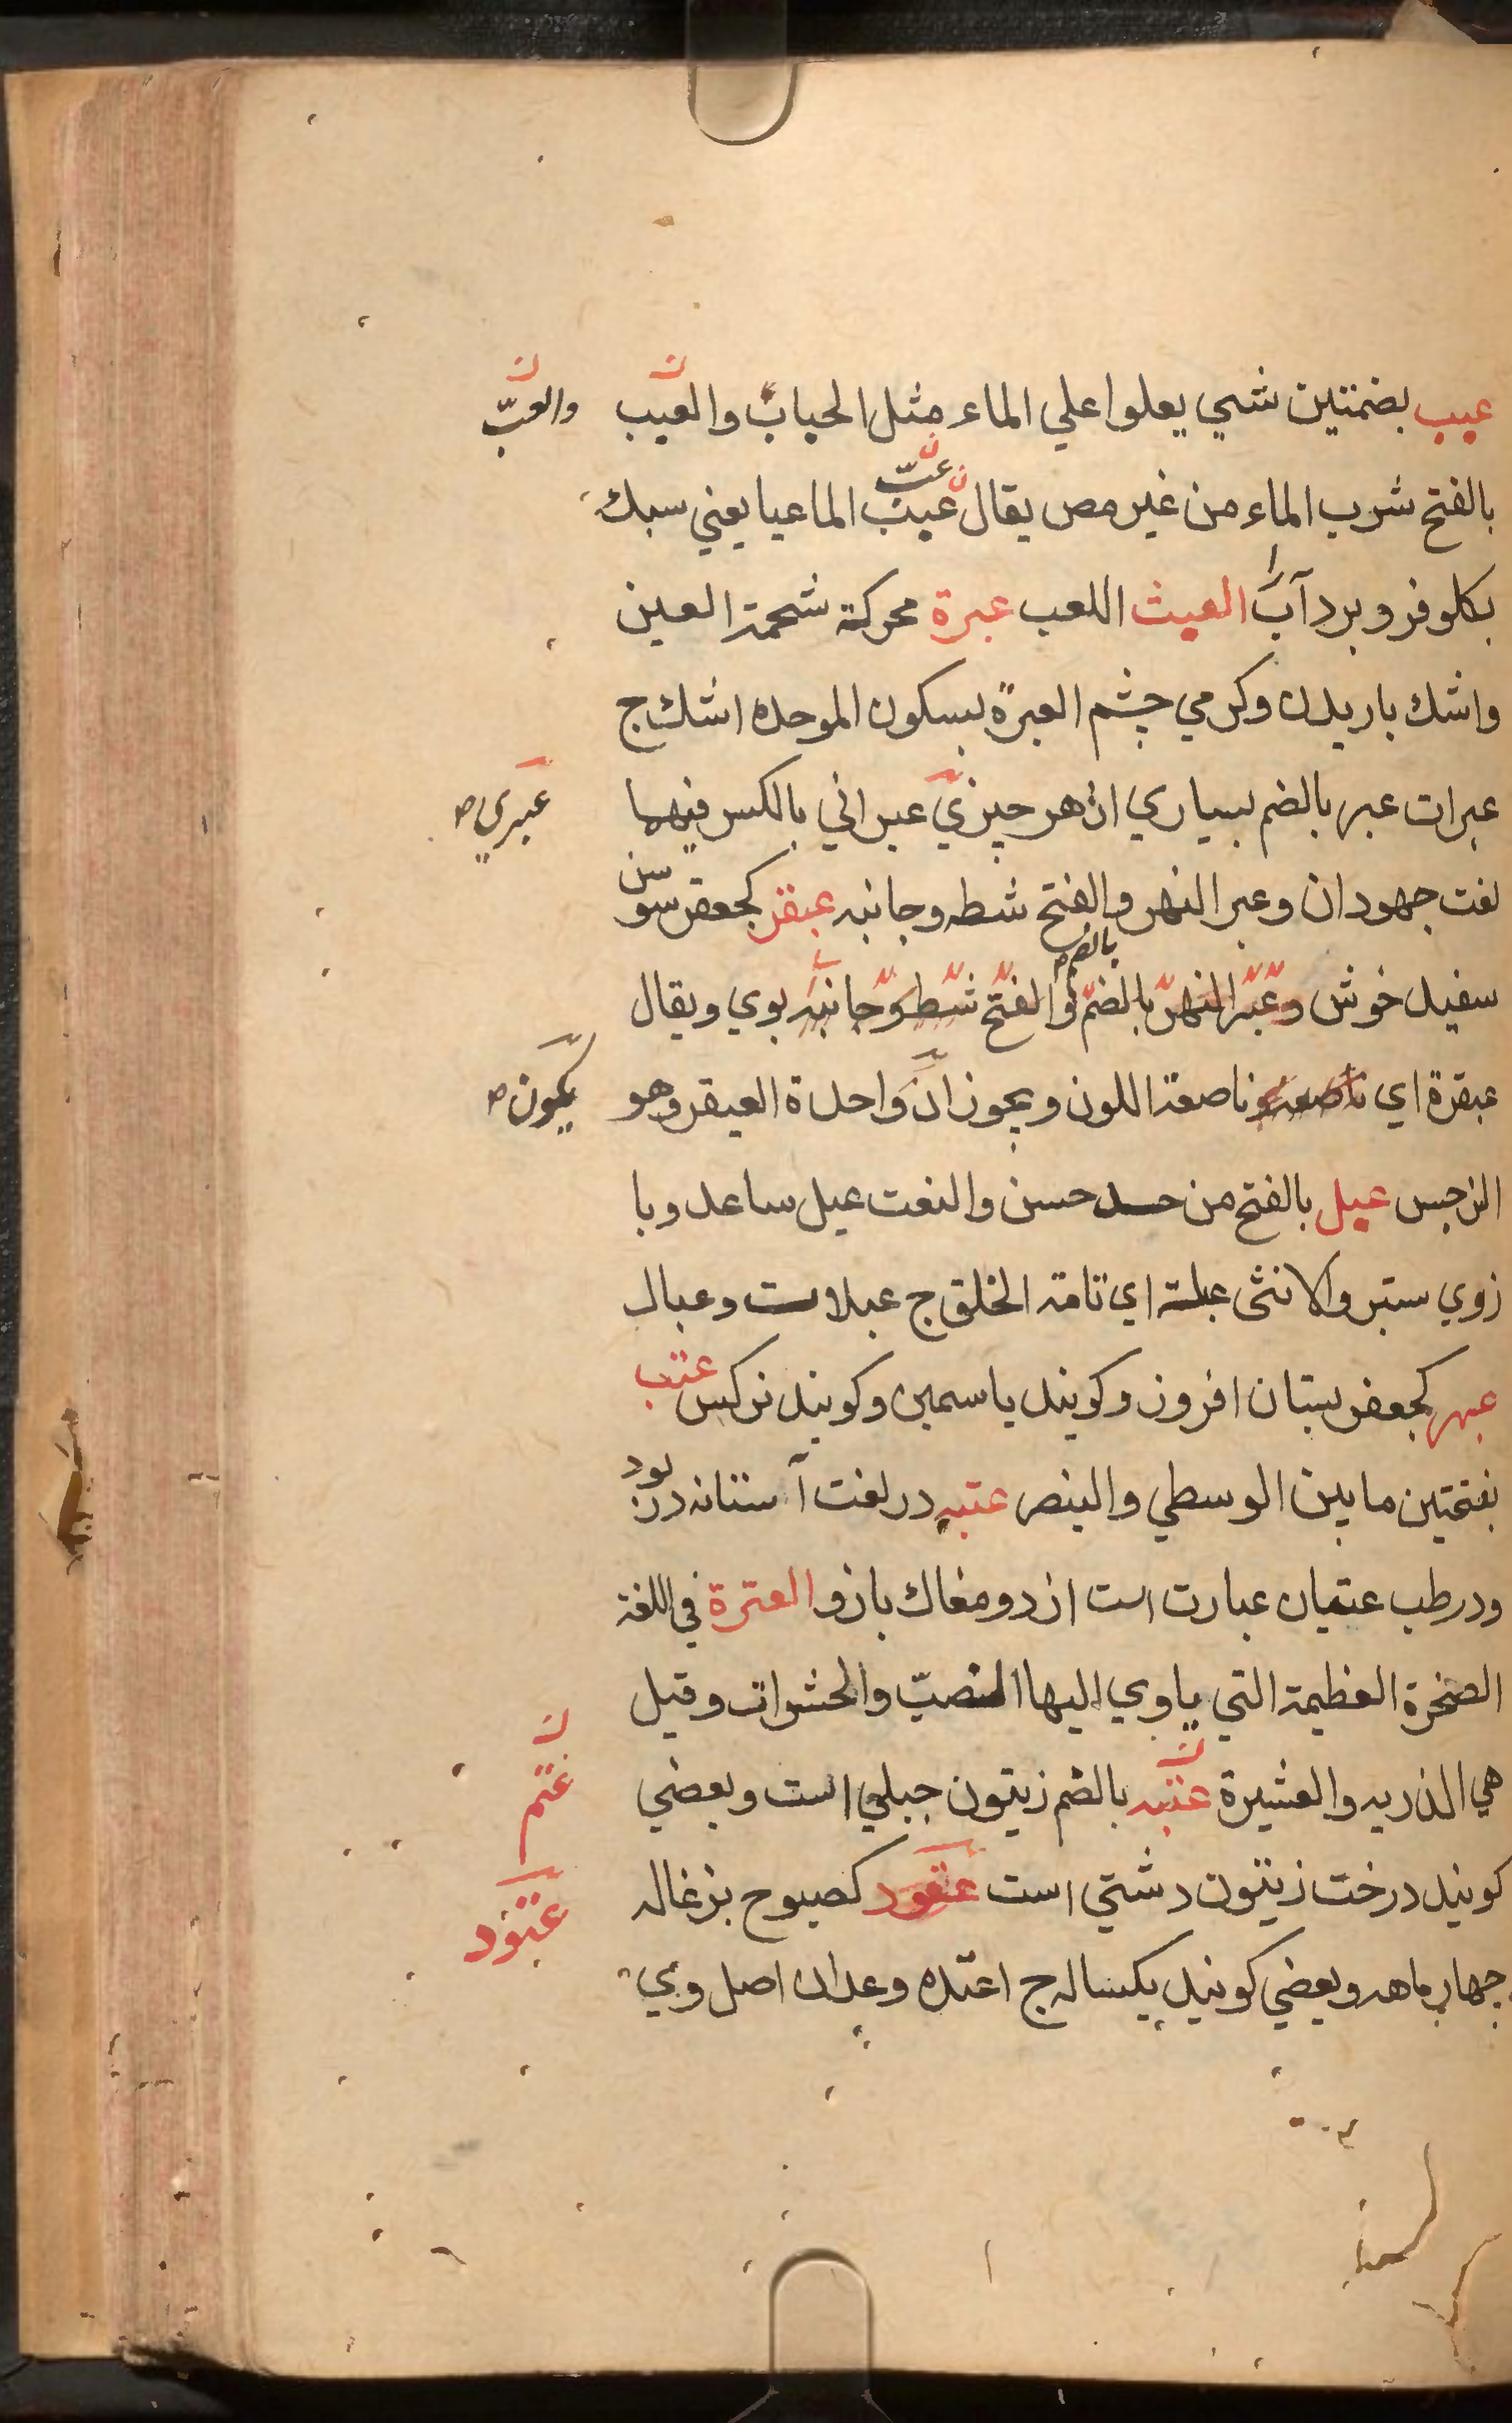 عبب بضمتين شي يعلوا علي الماء مثل الحباب والعبب والعبّ
بالفتح شرب الماء من غير مص يقال عببت عبّت الما عبا يعني سبك
بكلو فرو برد آب را العبث اللعب عبرة محركة شحمة العين
واشك باريدن وكرمي چشم العبرة بسكون الموحده اشك ج
عبرات عبر بالضم بسياري از هر چيزي عبراني بالكسر فيهما عبري ص
لغت جهودان وعبر النهر بالضم والفتح شطه وجانبه عبقر كجعفر سوسن
سفيد خوش وعبر النهر بالضم والفتح شطه وجانبه بوي ويقال
عبقرة اي ناصعة ناصعة اللون ويجوز ان واحدة العبقر وهو يكون ص
النرجس عبل بالفتح من حسد حسن والنعت عبل ساعد وبا
زوي ستبر والانثى عبلة اي تامة الخلق ج عبلات وعبال
عبهر كجعفر بستان افروز وكويند ياسمين وكويند نركس عتب
بفتحتين ما بين الوسطي والبنصر عتبه در لغت آستانه در بود
ودر طب عتبان عبارت است از دو مغاك بازو العترة في اللغة
الصخرة العظيمة التي ياوي اليها الضبّ والحشرات وقيل
هي الذريه والعشيرة عتبه بالضم زيتون جبلي است وبعضي عتم
كويند درخت زيتون دشتي است عتقود كصبوح بزغاله عتود
چهار ماهه وبعضي كويند يكساله ج اعتده وعدان اصل وي